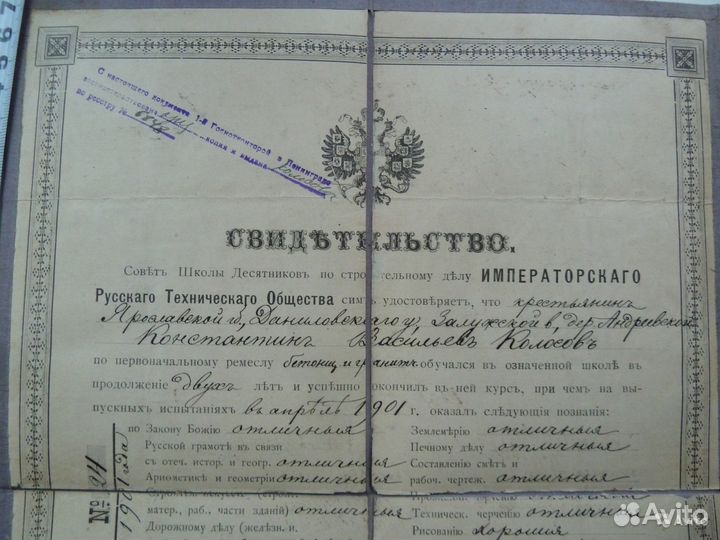 С настоящего документа 1-й Госнотконторой в Ленинграде
по реестру № копия и выдана
СВИДѢТЕЛЬСТВО.
Совѣтъ Школы Десятниковъ по строительному дѣлу ИМПЕРАТОРСКАГО
Русскаго Техническаго Общества симъ удостовѣряетъ, что крестьянинъ
Ярославской г., Даниловскаго у., Залужской в., дер. Андреевской
Константинъ Васильевъ Колосовъ
по первоначальному ремеслу бетонщ. и гранитч. обучался въ означенной школѣ въ
продолженіе двухъ лѣтъ и успѣшно окончилъ въ ней курсъ, при чемъ на вы-
пускныхъ испытаніяхъ въ апрѣлѣ 1901 г. оказалъ слѣдующія познанія:
по Закону Божію отличныя
Русской грамотѣ въ связи
съ отеч. истор. и геогр. отличныя
Ариѳметикѣ и геометріи отличныя
матер., раб., части зданій) отличныя
Дорожному дѣлу (желѣзн. и.
Землемѣрію отличныя
Печному дѣлу отличныя
Составленію смѣтъ и
рабоч. чертеж. отличныя
Техническ. черченію отличныя
Рисованію хорошія
№ 24
1901 года
5 6 7
Avito